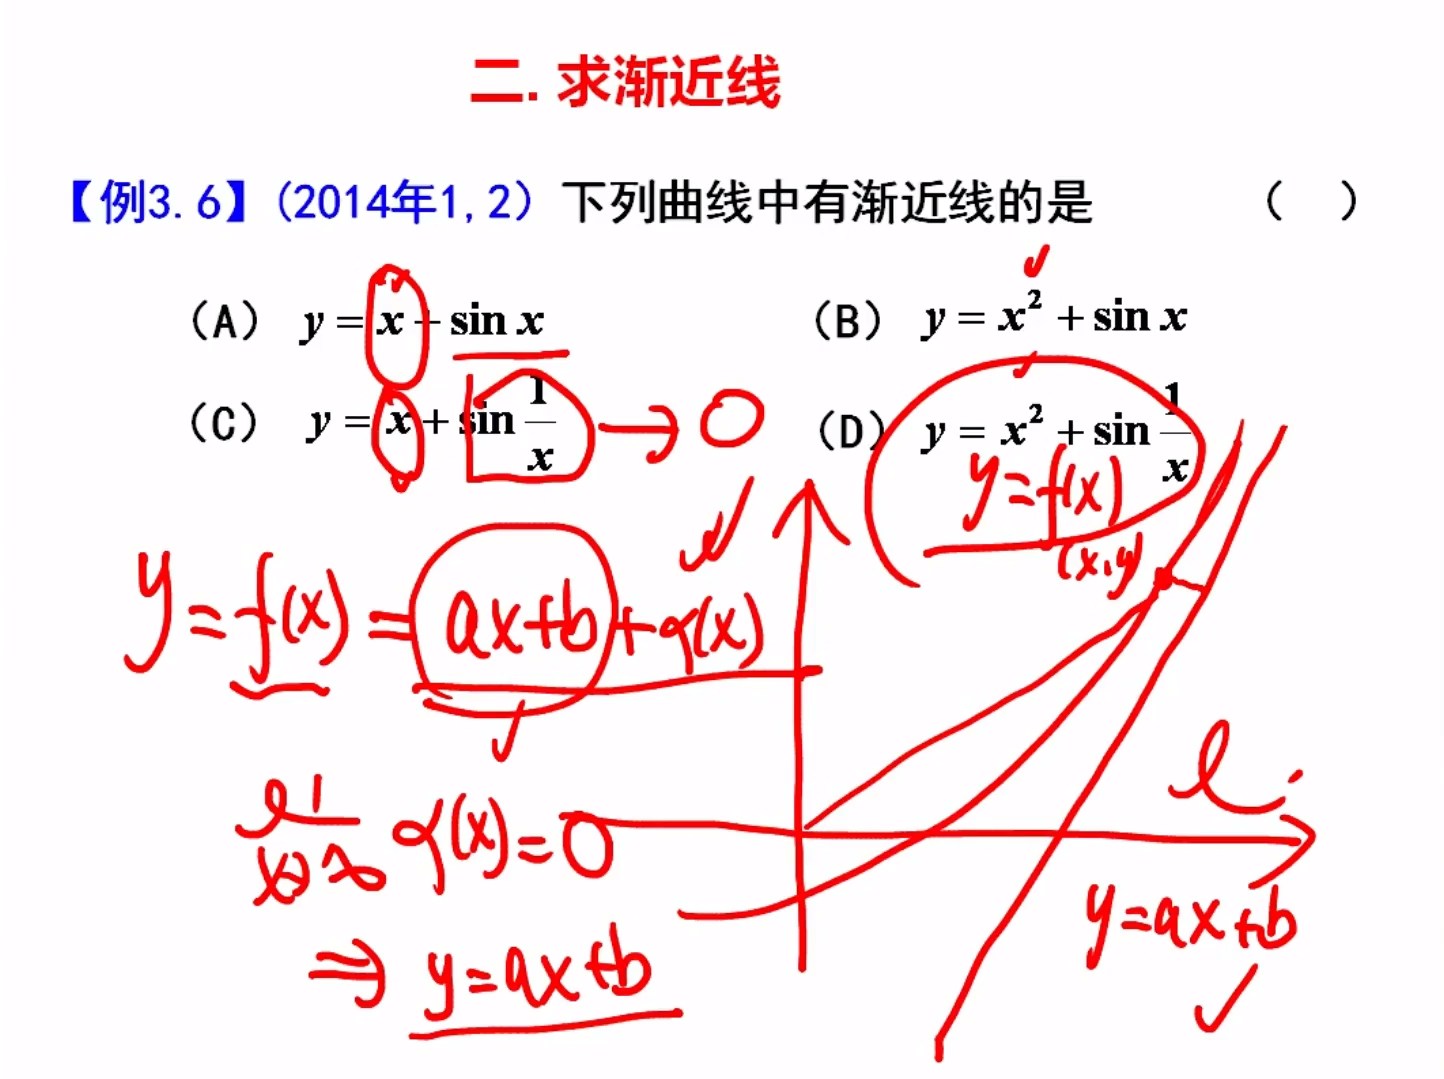 二.求渐近线
【例3.6】(2014年1,2) 下列曲线中有渐近线的是 ( )
(A) y = x + sin x
(B) y = x² + sin x
(C) y = x + sin 1/x → 0
(D) y = x² + sin 1/x
y = f(x)
(x,y)
y = f(x) = ax+b + α(x)
α(x) = 0
l
y = ax+b
⇒ y = ax+b